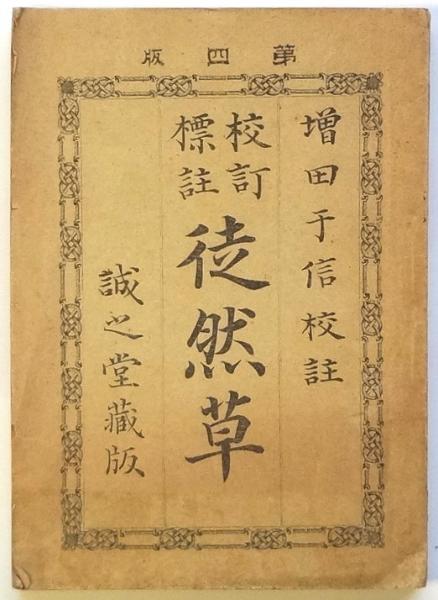 第四版
増田于信校註
校訂
標註
徒然草
誠之堂藏版